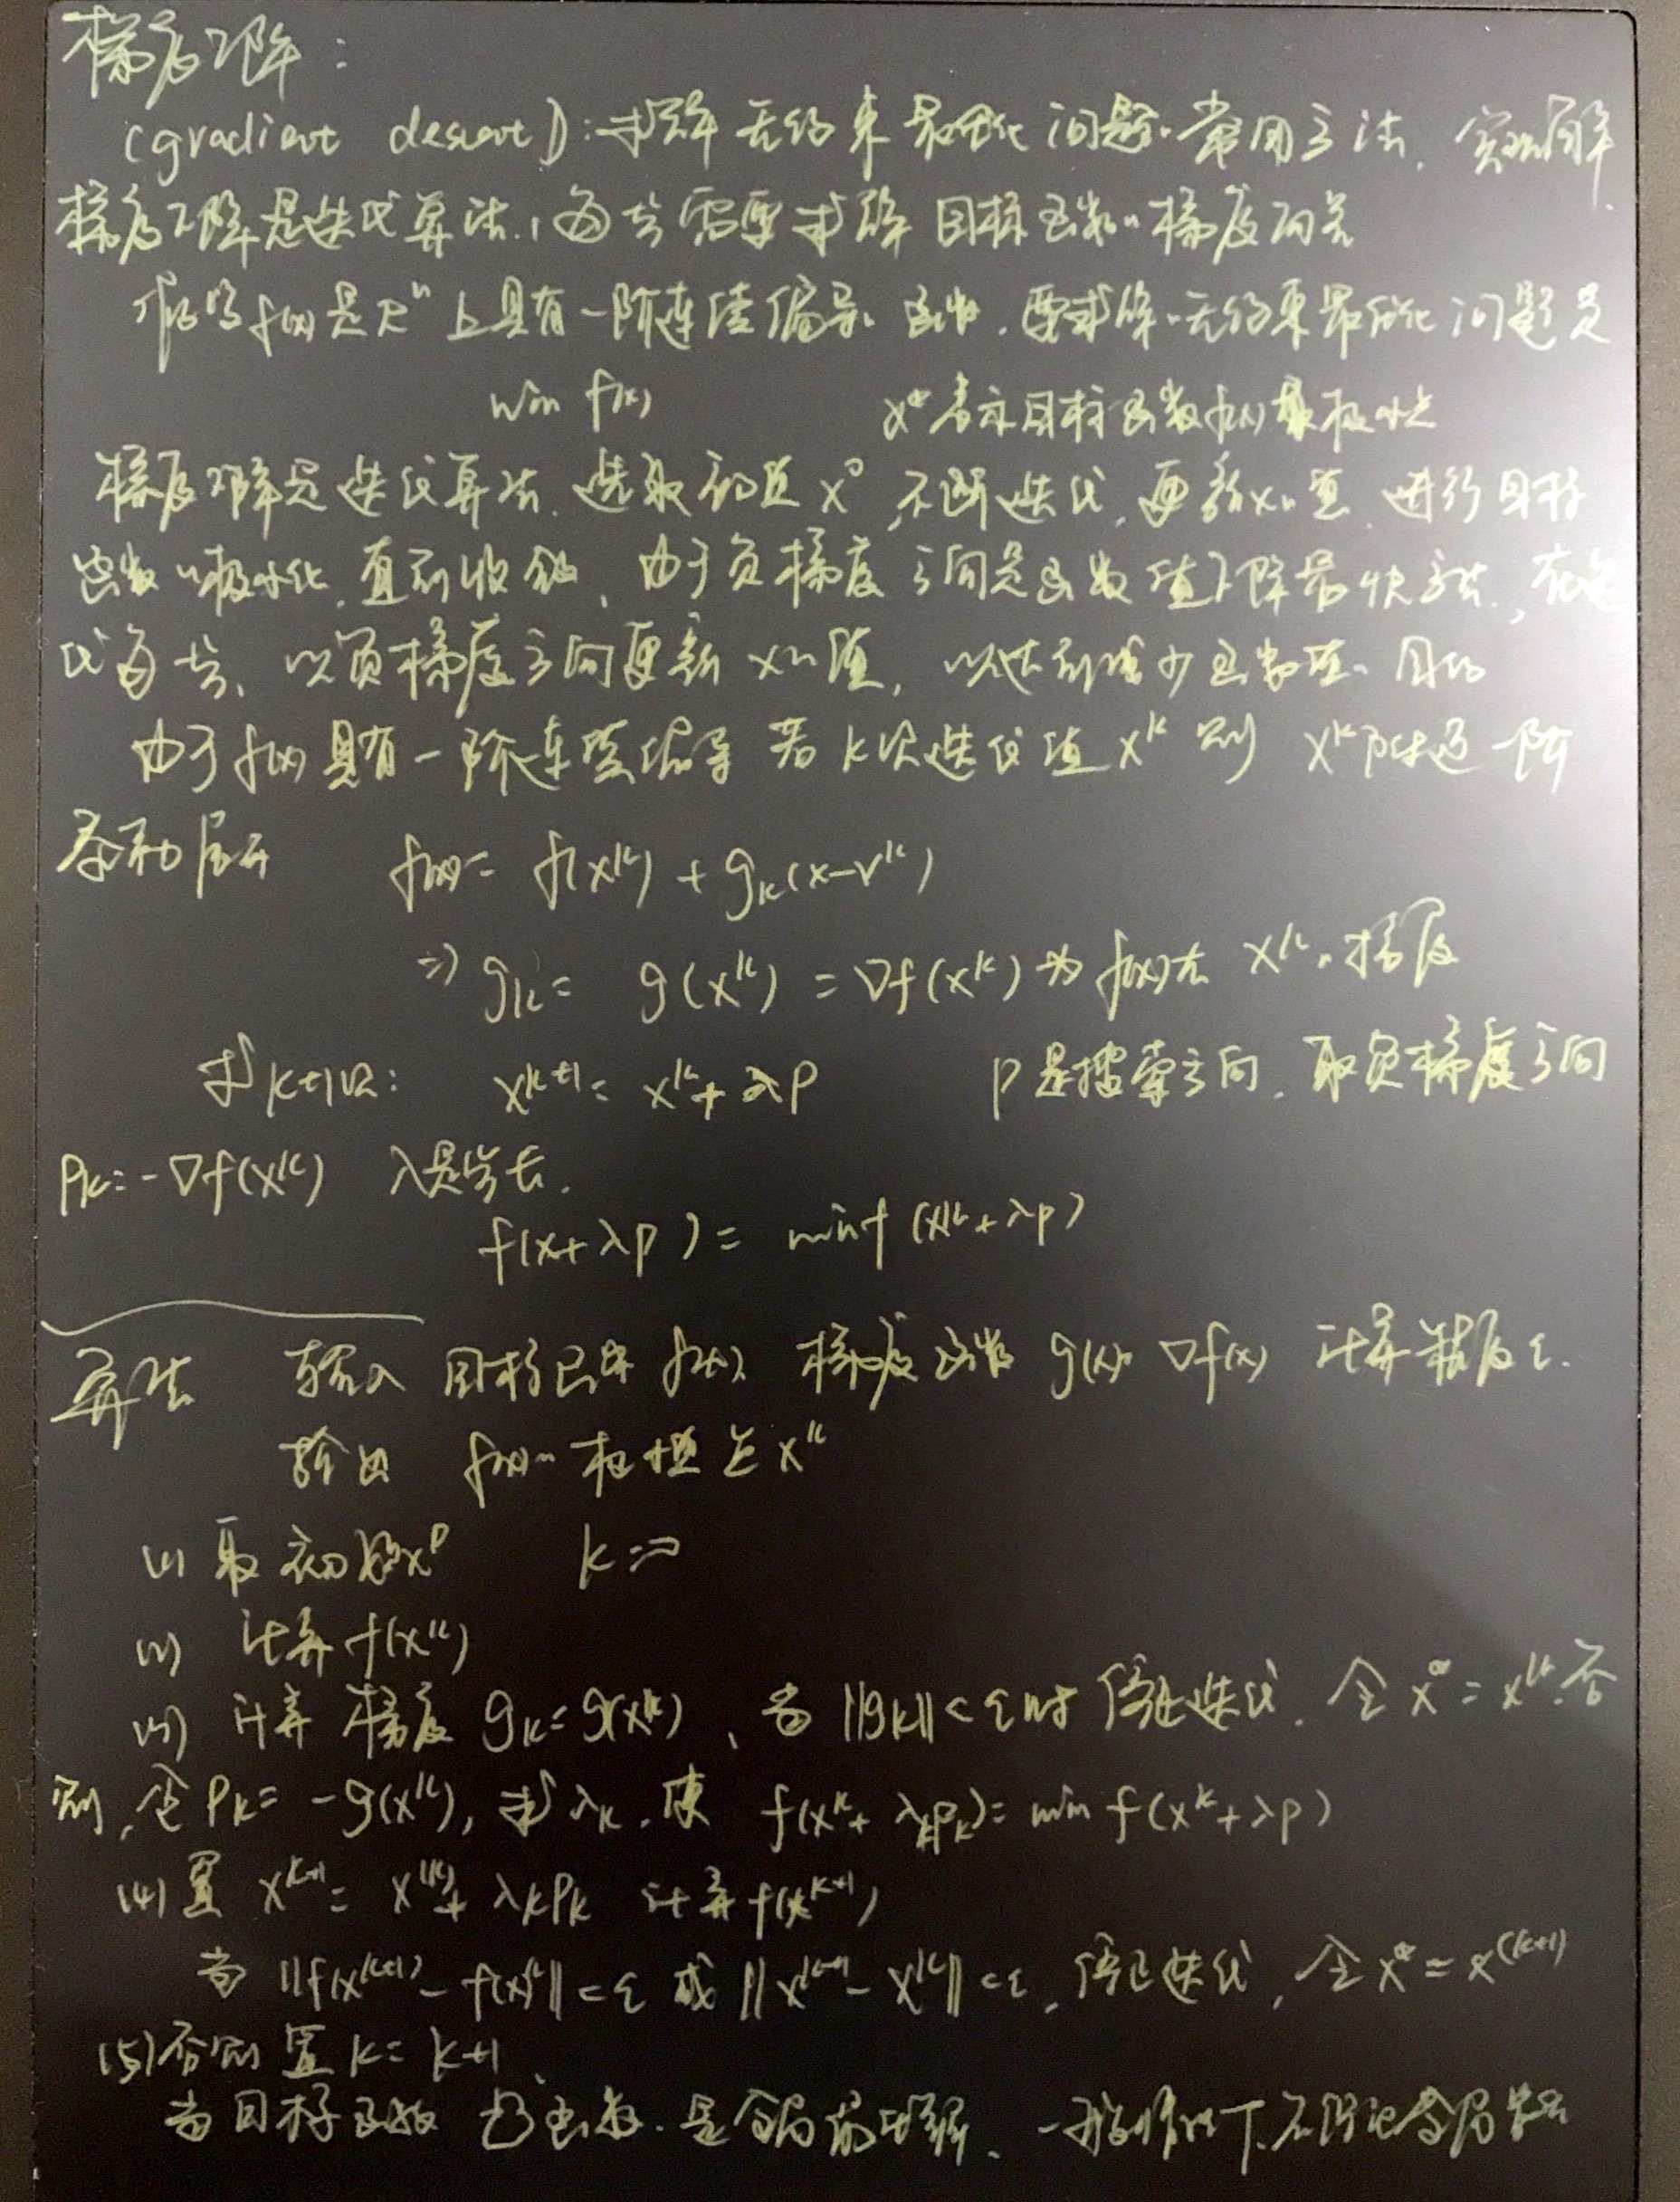 梯度下降:
(gradient descent):求解无约束最优化问题的常用方法,实现简单
梯度下降是迭代算法,每步需要求解目标函数的梯度向量
假设f(x)是R^n上具有一阶连续偏导的函数,要求解的无约束最优化问题是
min f(x) x*表示目标函数f(x)的极小点
梯度下降是迭代算法,选取初值x^0,不断迭代,更新x的值,进行目标
函数的极小化,直到收敛,由于负梯度方向是函数值下降最快方法,在迭
代每步,以负梯度方向更新x的值,以达到减少函数值的目的
由于f(x)具有一阶连续偏导 若k次迭代值x^k 则 x^k附近一阶
泰勒展开 f(x)= f(x^k) + g_k(x-x^k)
=> g_k= g(x^k) = ∇f(x^k)为f(x)在x^k的梯度
求k+1次: x^k+1= x^k+ λp p是搜索方向,取负梯度方向
p_k=-∇f(x^k) λ是步长.
f(x+λp)= min f(x^k+λp)
算法 输入 目标函数f(x) 梯度函数 g(x)= ∇f(x) 计算精度ε.
输出 f(x)的极值点x^k
(1) 取初始x^0 k=0
(2) 计算f(x^k)
(3) 计算梯度 g_k=g(x^k),当||g_k||<ε时 停止迭代.令x*=x^k.否
则,令p_k= -g(x^k),求λ_k,使 f(x^k+λ_kp_k)=min f(x^k+λp)
(4)置 x^k+1= x^(k)+ λ_kp_k 计算f(x^k+1)
当||f(x^(k+1))-f(x)^k||<ε 或||x^k+1-x^k||<ε,停止迭代,令x*=x^(k+1)
(5)否则置k=k+1、
当目标函数 凸函数.是全局最优解、一般情况下.不保证全局最优